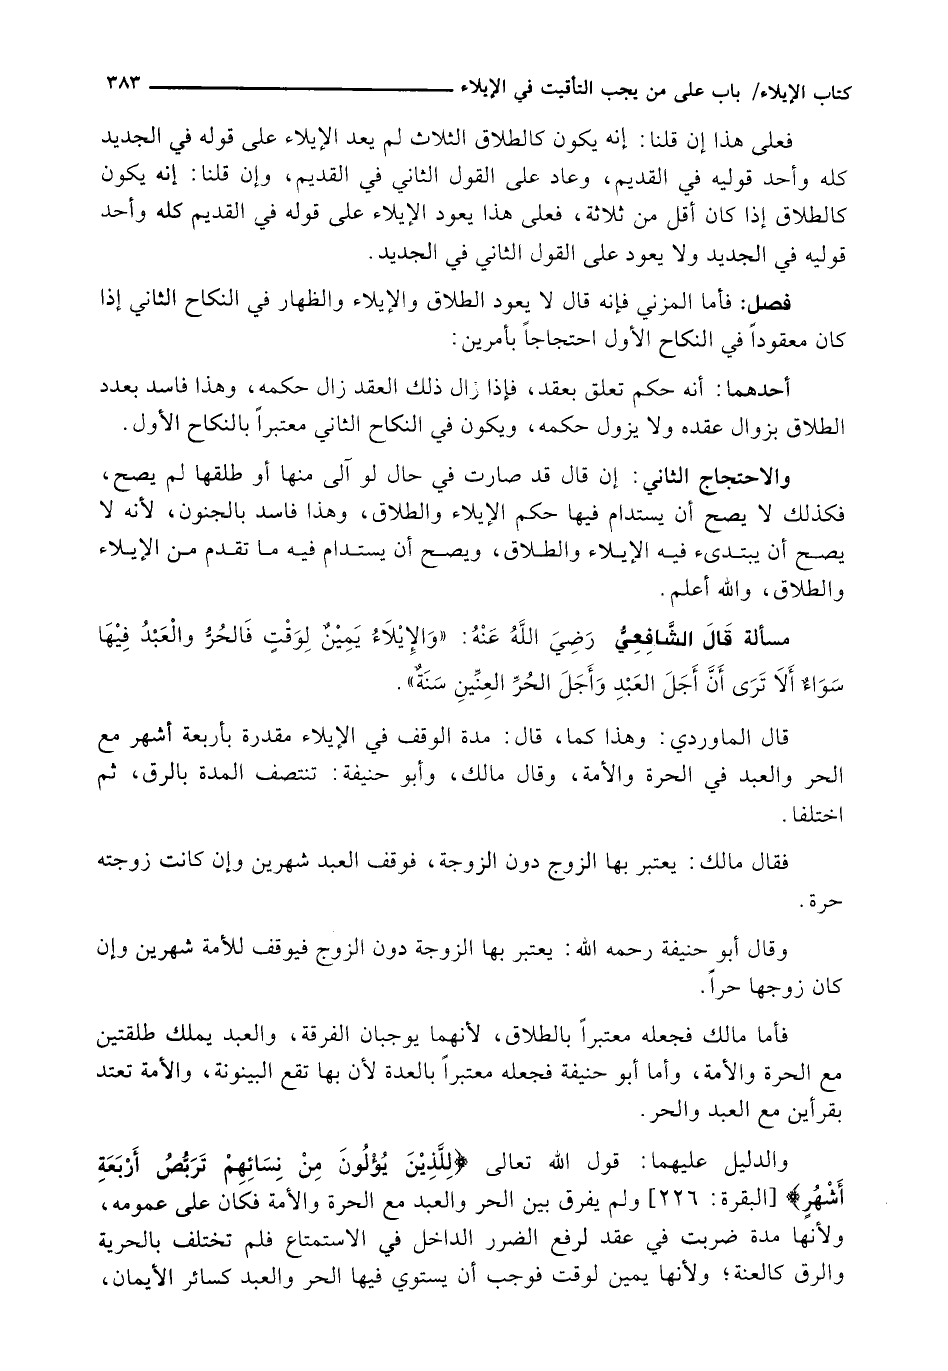 كتاب الإيلاء/ باب على من يجب التأقيت في الإيلاء ٣٨٣
فعلى هذا إن قلنا: إنه يكون كالطلاق الثلاث لم يعد الإيلاء على قوله في الجديد
كله وأحد قوليه في القديم، وعاد على القول الثاني في القديم، وإن قلنا: إنه يكون
كالطلاق إذا كان أقل من ثلاثة، فعلى هذا يعود الإيلاء على قوله في القديم كله وأحد
قوليه في الجديد ولا يعود على القول الثاني في الجديد.
فصل: فأما المزني فإنه قال لا يعود الطلاق والإيلاء والظهار في النكاح الثاني إذا
كان معقوداً في النكاح الأول احتجاجاً بأمرين:
أحدهما: أنه حكم تعلق بعقد، فإذا زال ذلك العقد زال حكمه، وهذا فاسد بعدد
الطلاق بزوال عقده ولا يزول حكمه، ويكون في النكاح الثاني معتبراً بالنكاح الأول.
والاحتجاج الثاني: إن قال قد صارت في حال لو آلى منها أو طلقها لم يصح،
فكذلك لا يصح أن يستدام فيها حكم الإيلاء والطلاق، وهذا فاسد بالجنون، لأنه لا
يصح أن يبتدىء فيه الإيلاء والطلاق، ويصح أن يستدام فيه ما تقدم من الإيلاء
والطلاق، والله أعلم.
مسألة قَالَ الشَّافِعِيُّ رَضِيَ اللَّهُ عَنْهُ: «وَالإِيْلَاءُ يَمِيْنٌ لِوَقْتٍ فَالحُرُّ والْعَبْدُ فِيْهَا
سَوَاءٌ أَلَا تَرَى أَنَّ أَجَلَ العَبْدِ وَأَجَلَ الحُرِّ العِنِّينِ سَنَةٌ».
قال الماوردي: وهذا كما، قال: مدة الوقف في الإيلاء مقدرة بأربعة أشهر مع
الحر والعبد في الحرة والأمة، وقال مالك، وأبو حنيفة: تنتصف المدة بالرق، ثم
اختلفا.
فقال مالك: يعتبر بها الزوج دون الزوجة، فوقف العبد شهرين وإن كانت زوجته
حرة.
وقال أبو حنيفة رحمه الله: يعتبر بها الزوجة دون الزوج فيوقف للأمة شهرين وإن
كان زوجها حراً.
فأما مالك فجعله معتبراً بالطلاق، لأنهما يوجبان الفرقة، والعبد يملك طلقتين
مع الحرة والأمة، وأما أبو حنيفة فجعله معتبراً بالعدة لأن بها تقع البينونة، والأمة تعتد
بقرأين مع العبد والحر.
والدليل عليهما: قول الله تعالى ﴿لِلَّذِيْنَ يُؤْلُونَ مِنْ نِسَائِهِمْ تَرَبُّصُ أَرْبَعَةِ
أَشْهُرٍ﴾ [البقرة: ٢٢٦] ولم يفرق بين الحر والعبد مع الحرة والأمة فكان على عمومه،
ولأنها مدة ضربت في عقد لرفع الضرر الداخل في الاستمتاع فلم تختلف بالحرية
والرق كالعنة؛ ولأنها يمين لوقت فوجب أن يستوي فيها الحر والعبد كسائر الأيمان،